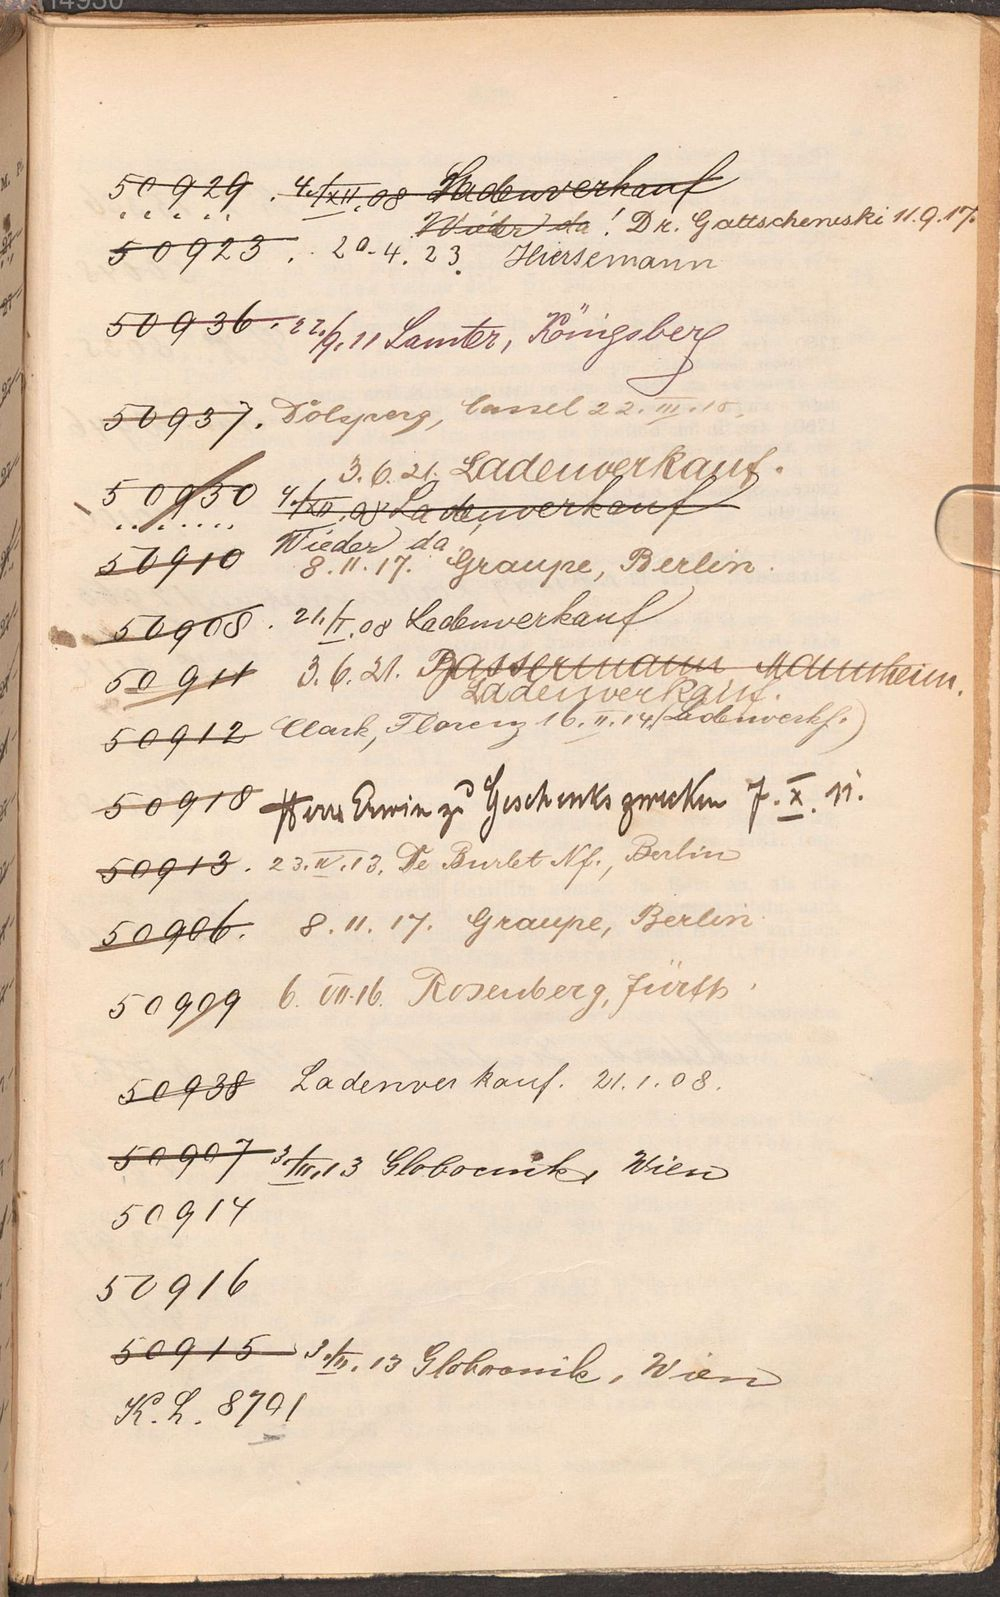 50929. 4./XII.08 Ladenverkauf
Wieder da! Dr. Gottschewski 11.9.17.
50923. 20.4.23. Hiersemann
50936. 22./9.11 Samter, Königsberg
50937. Cassel 22.III.15.
3.6.21. Ladenverkauf.
50930 4./XII.08 Ladenverkauf
Wieder da
50910 8.11.17. Graupe, Berlin.
50908. 21./I.08 Ladenverkauf
50911 3.6.21. Bassermann Mannheim.
Ladenverkauf.
50912 Clark, Florenz 16.II.14 (Ladenverkf.)
50918 Herrn Erwin zu Geschenkszwecken 7.X.11.
50913. 23.IV.13. De Burlet Nf., Berlin
50906. 8.11.17. Graupe, Berlin
50909 6.VII.16. Rosenberg, Fürth.
50938 Ladenverkauf. 21.1.08.
50907 3./III.13 Globocnik, Wien
50914
50916
50915 3./III.13 Globocnik, Wien
K.L. 8701